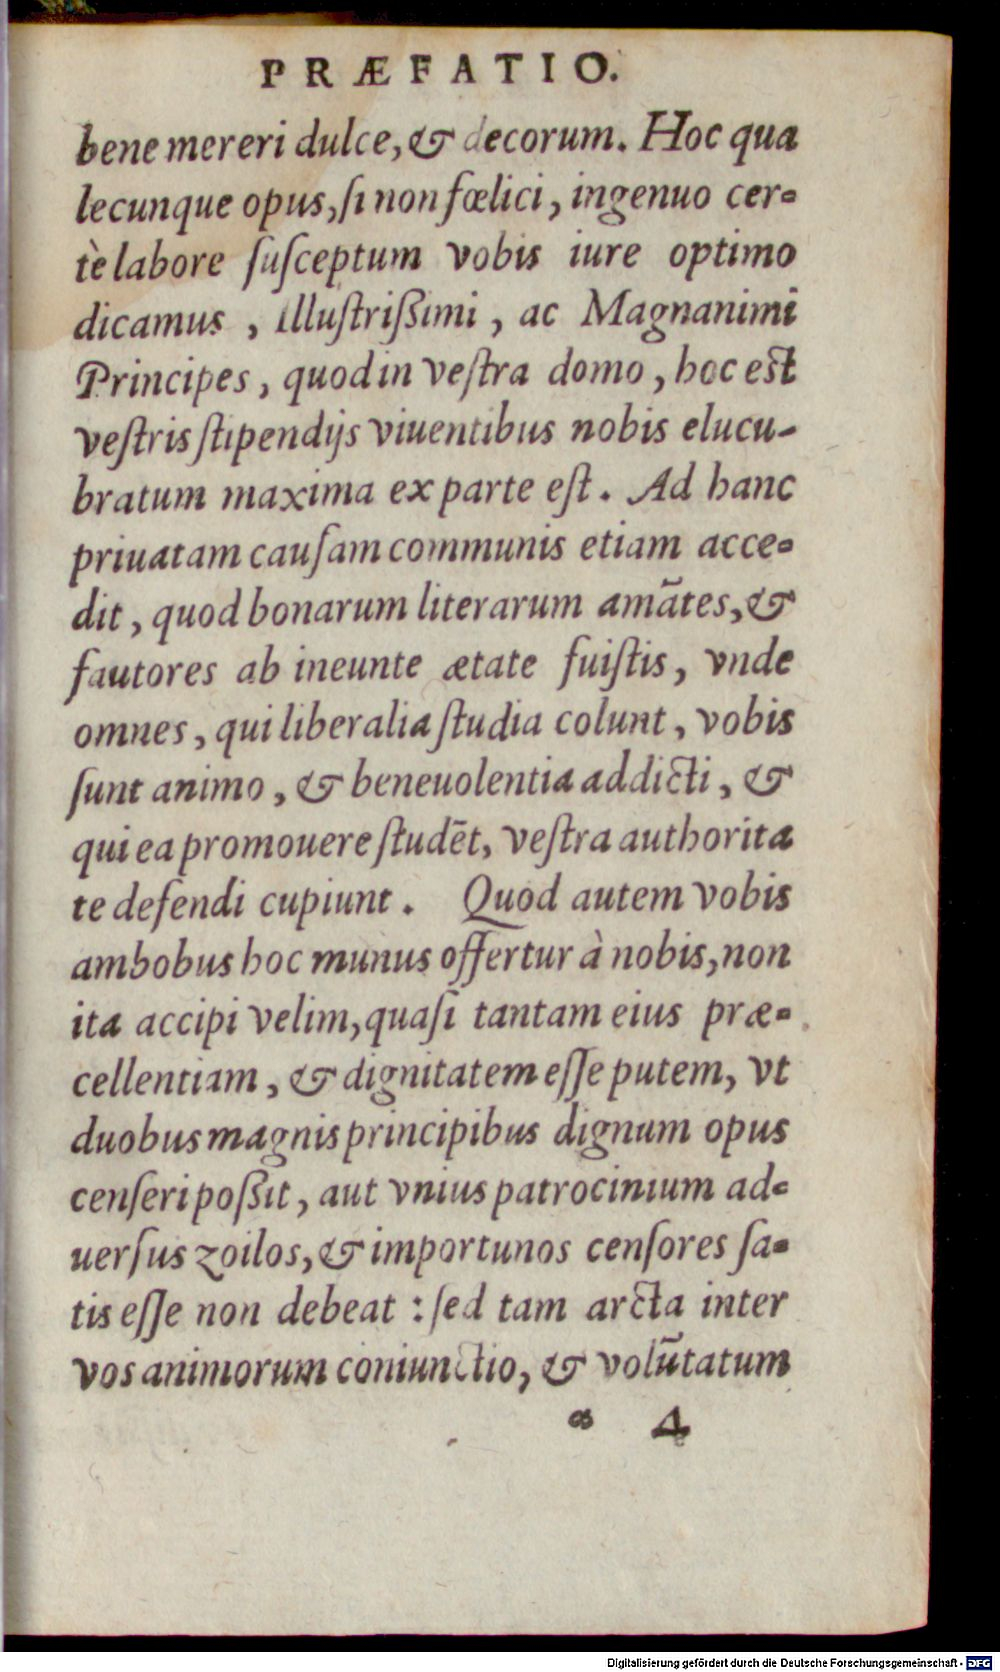 PRÆFATIO.
bene mereri dulce, & decorum. Hoc qua
lecunque opus, ſi non fœlici, ingenuo cer-
tè labore ſuſceptum vobis iure optimo
dicamus, Illuſtrißimi, ac Magnanimi
Principes, quod in veſtra domo, hoc est
veſtris ſtipendijs viuentibus nobis elucu-
bratum maxima ex parte eſt. Ad hanc
priuatam cauſam communis etiam acce-
dit, quod bonarum literarum amātes, &
fautores ab ineunte ætate fuiſtis, vnde
omnes, qui liberalia ſtudia colunt, vobis
ſunt animo, & beneuolentia addicti, &
qui ea promouere ſtudēt, veſtra authorita
te defendi cupiunt. Quod autem vobis
ambobus hoc munus offertur à nobis, non
ita accipi velim, quaſi tantam eius præ-
cellentiam, & dignitatem eſſe putem, vt
duobus magnis principibus dignum opus
cenſeri poßit, aut vnius patrocinium ad-
uerſus zoilos, & importunos cenſores ſa-
tis eſſe non debeat : ſed tam arcta inter
vos animorum coniunctio, & volūtatum
α 4
Digitalisierung gefördert durch die Deutsche Forschungsgemeinschaft - DFG